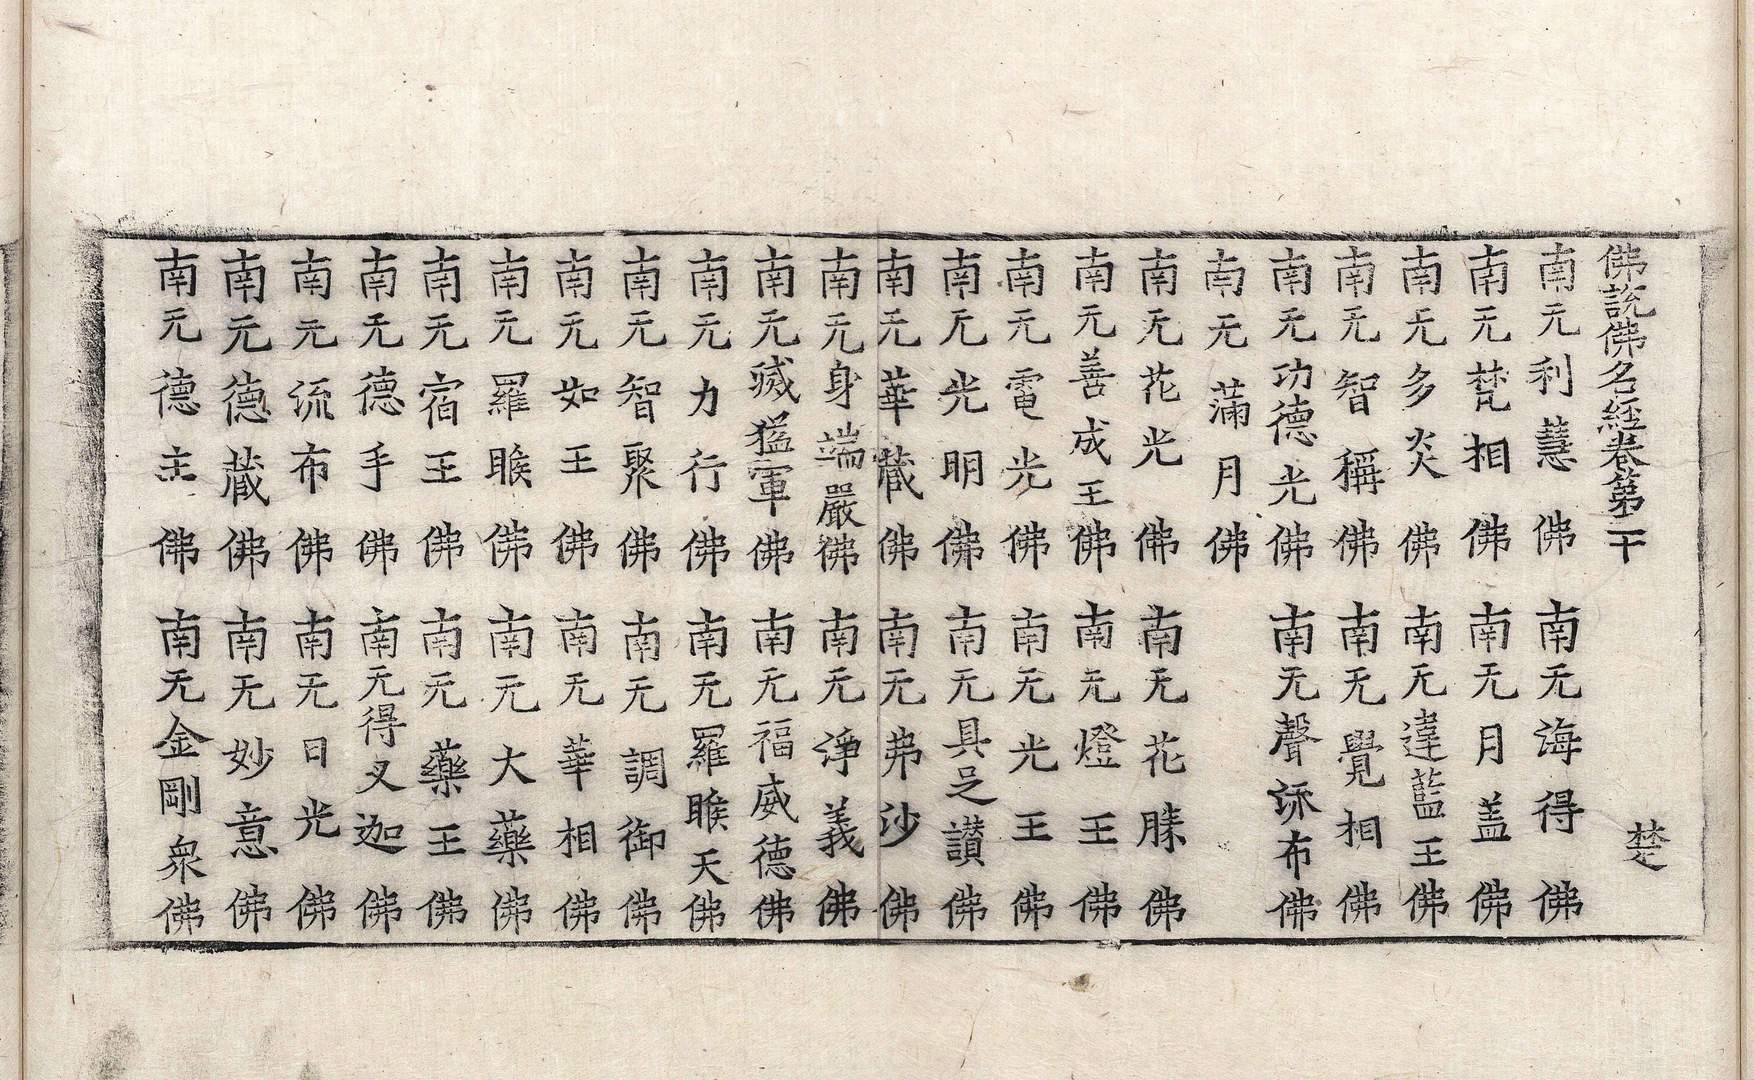 佛說佛名經卷第二十 楚
南无利慧佛 南无海得佛
南无梵相佛 南无月盖佛
南无多炎佛 南无違藍王佛
南无智稱佛 南无覺相佛
南无功德光佛 南无聲𠰥布佛
南无蒲月佛
南无花光佛 南无花勝佛
南无善成王佛 南无燈王佛
南无電光佛 南无光王佛
南无光明佛 南无具足讃佛
南无華蔵佛 南无弗沙佛
南无身端嚴佛 南无淨義佛
南无威猛軍佛 南无福威德佛
南无力行佛 南无羅睺天佛
南无智聚佛 南无調御佛
南无如王佛 南无華相佛
南无羅睺佛 南无大藥佛
南无宿王佛 南无藥王佛
南无德手佛 南无得叉迦佛
南无流布佛 南无日光佛
南无德蔵佛 南无妙意佛
南无德主佛 南无金剛衆佛